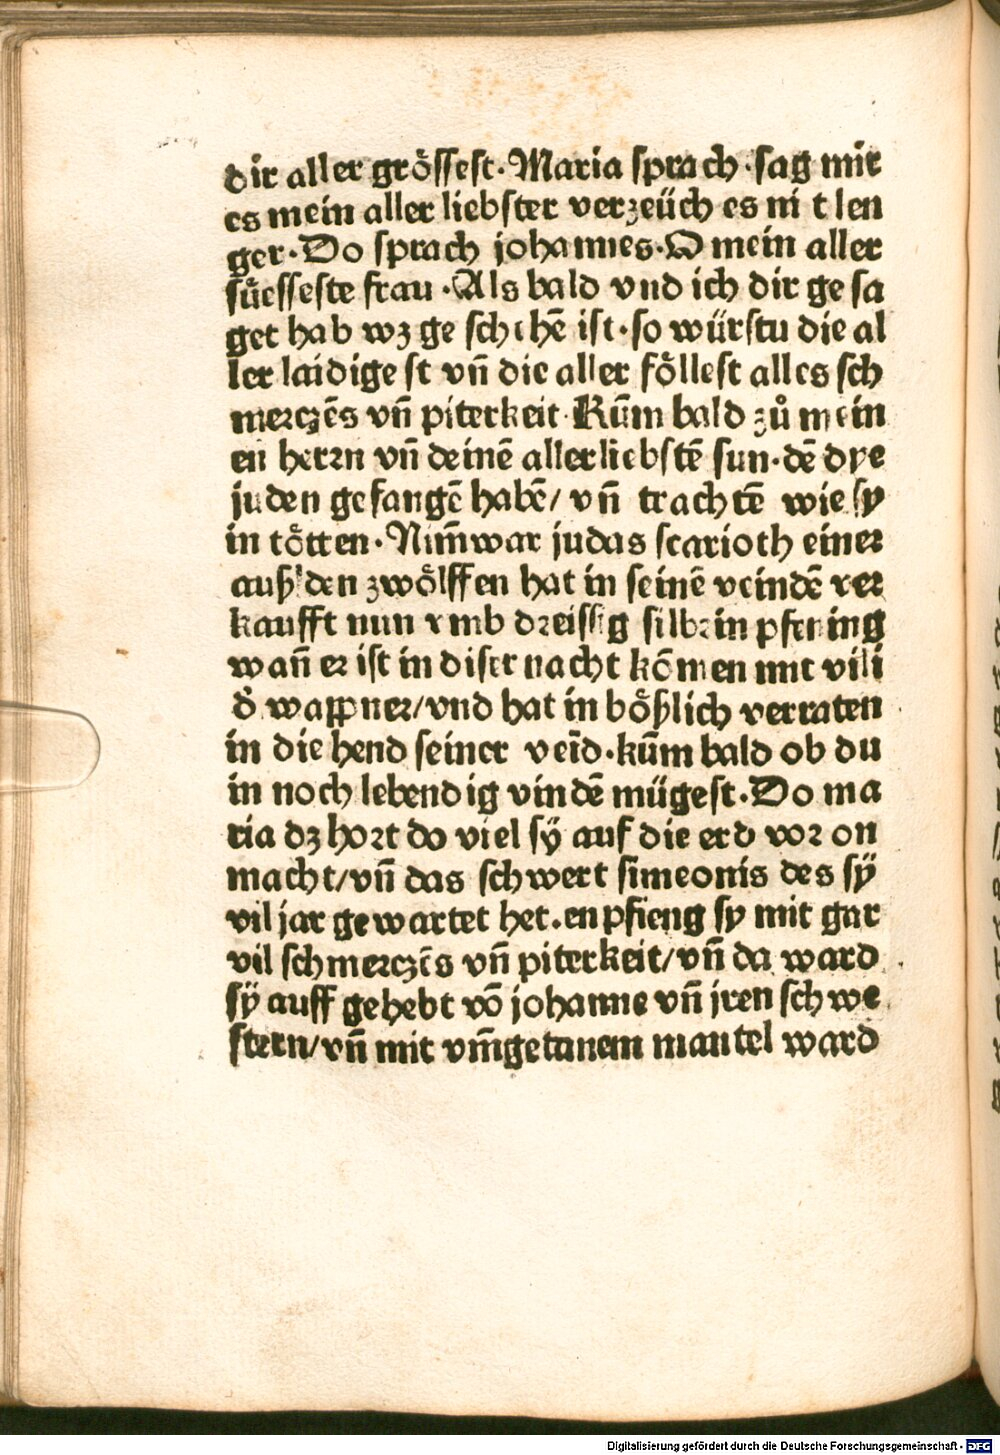 dir aller grössest·Maria sprach·sag mir
es mein aller liebster verzeüch es nit len
ger·Do sprach johannes·O mein aller
süesseste frau·Als bald vnd ich dir ge sa
get hab wʒ ge schehē ist·so würstu die al
ler laidigest vn̄ die aller föllest alles sch
merczēs vn̄ piterkeit·Kūm bald zů mein
en herrn vn̄ deinē allerliebstē sun·dē dye
juden gefangē habē/ vn̄ trachtē wie sy
in tötten·Nim̄war judas scarioth einer
auß den zwölffen hat in seinē veindē ver
kaufft nun vmb dreissig silbrin pfening
wan̄ er ist in diser nacht kōmen mit vili
d̊ wappner/vnd hat in bößlich verraten
in die hend seiner veīd·kūm bald ob du
in noch lebendig vindē mügest·Do ma
ria dʒ hort do viel sÿ auf die erd vor on
macht/vn̄ das schwert simeonis des sÿ
vil jar gewartet het·enpfieng sy mit gar
vil schmerczēs vn̄ piterkeit/vn̄ da ward
sÿ auff gehebt vō johanne vn̄ jren schwe
stern/vn̄ mit vm̄getanem mantel ward
Digitalisierung gefördert durch die Deutsche Forschungsgemeinschaft - DFG